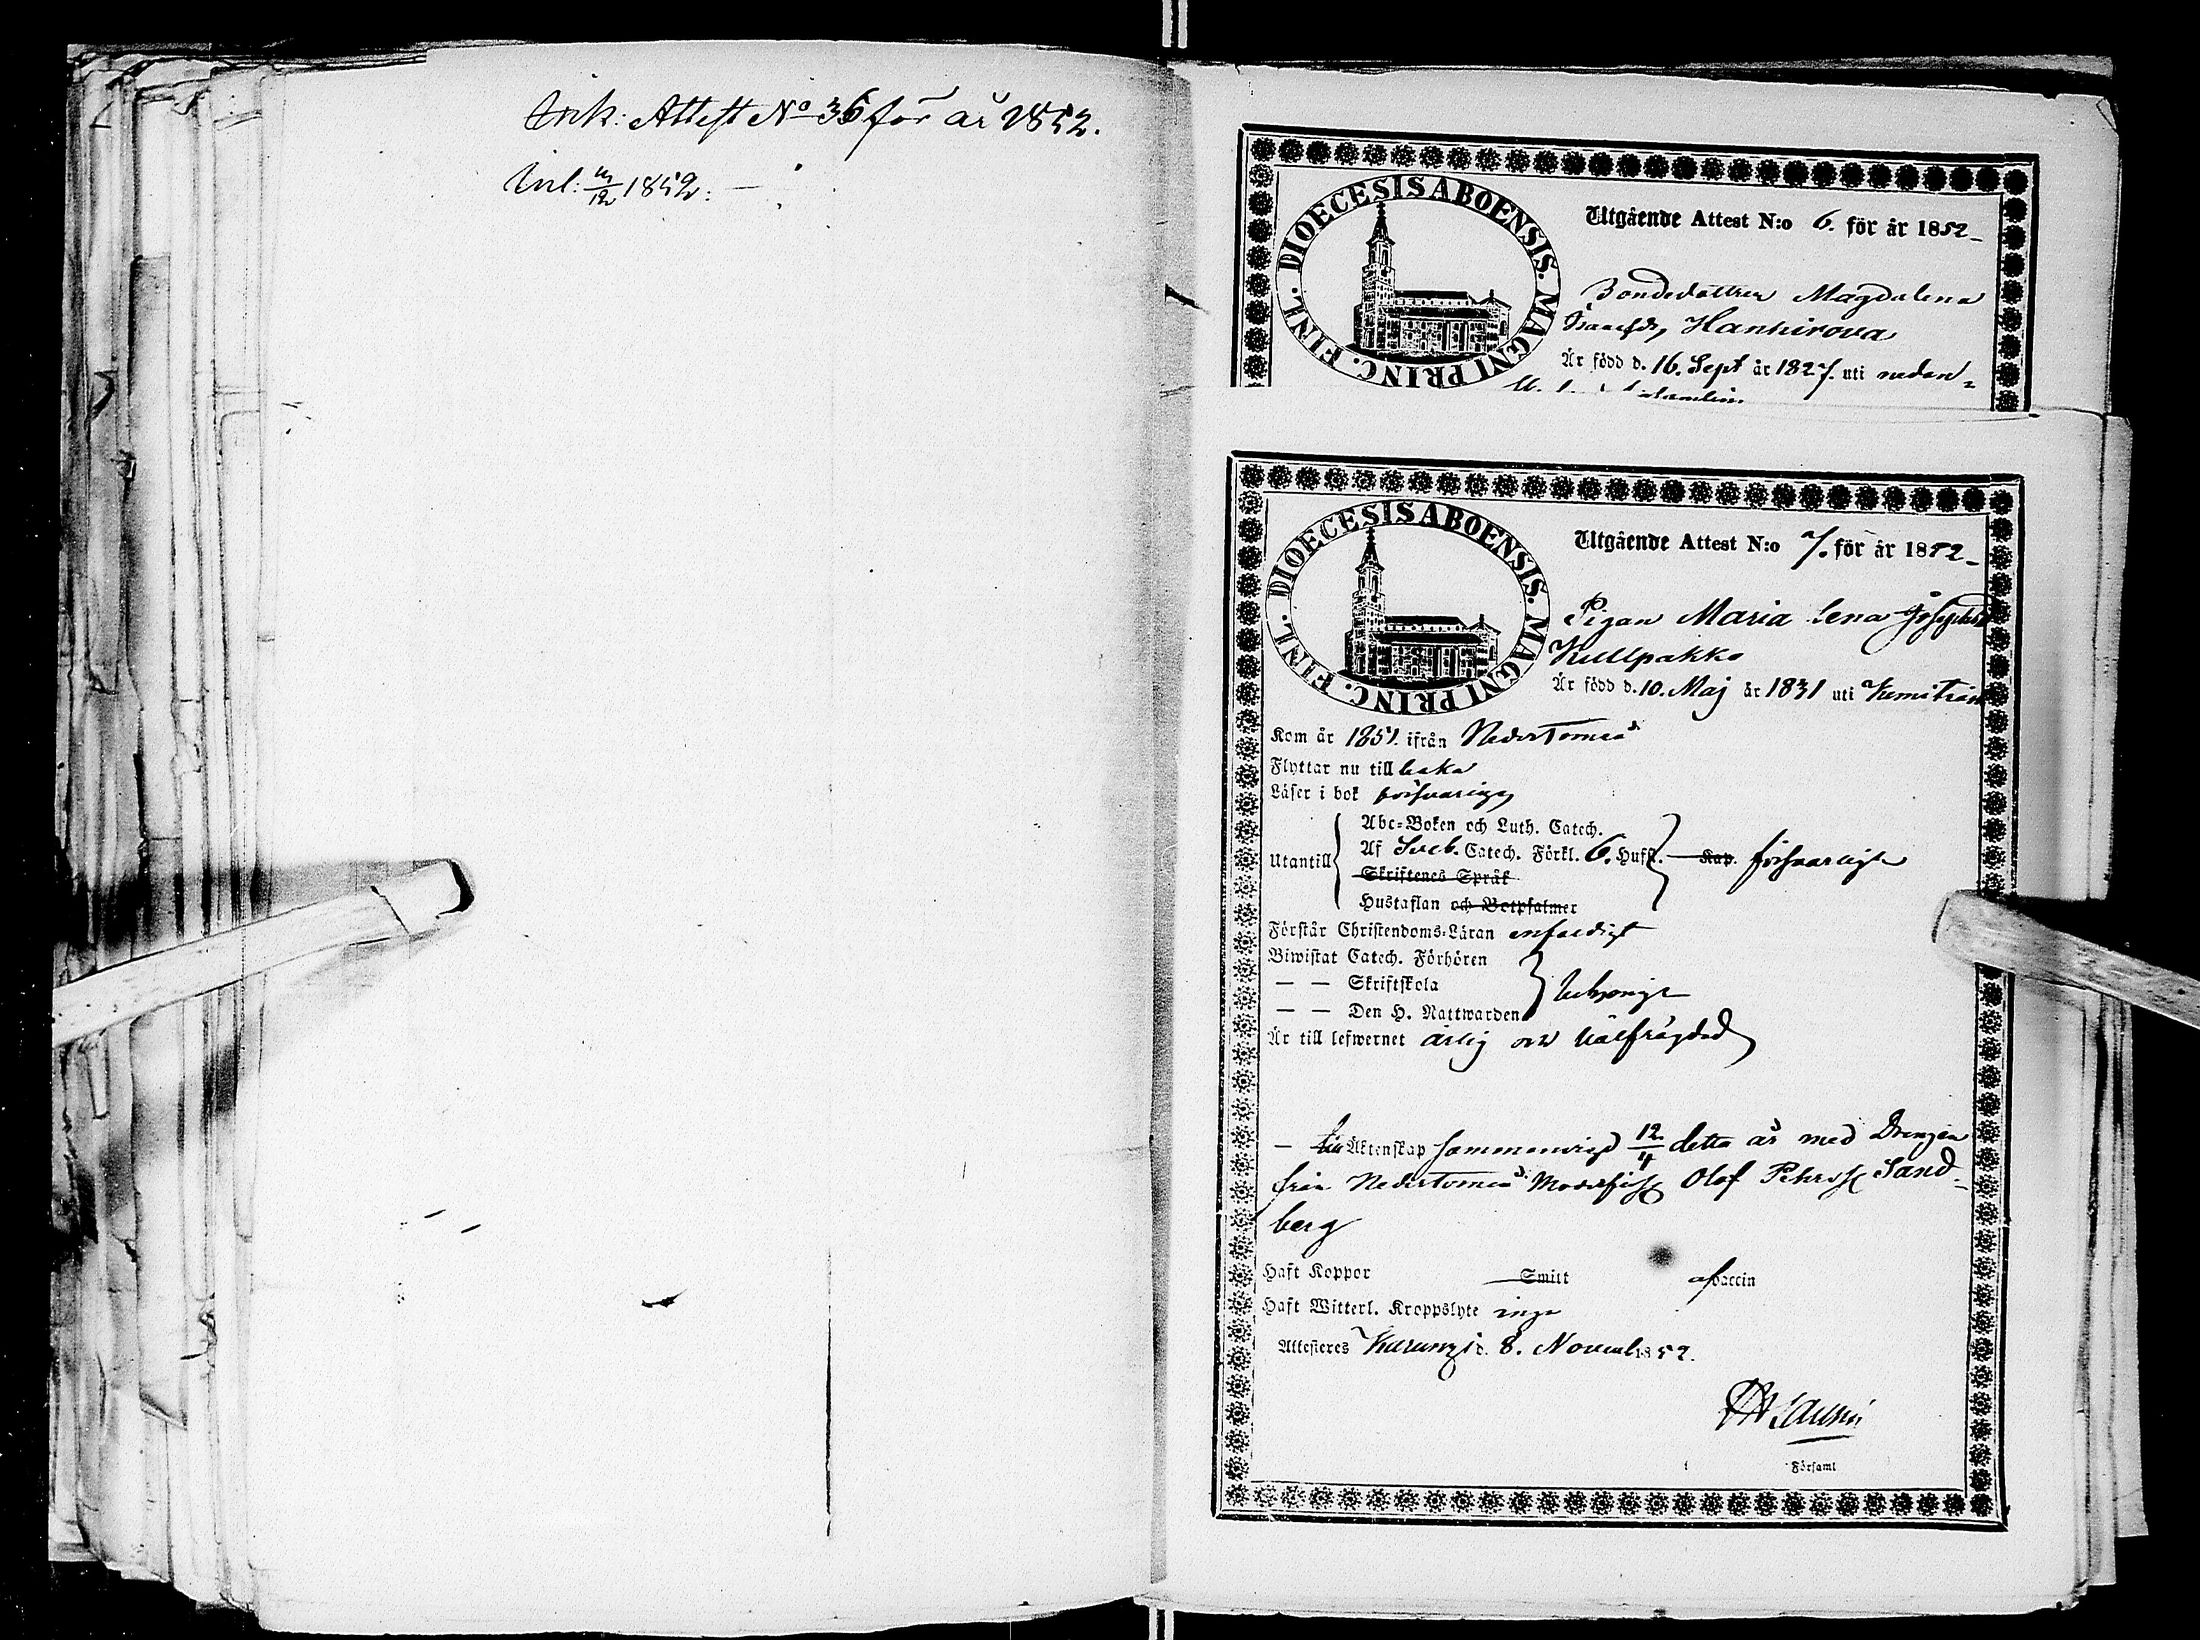 Ank: Attest No 36 för år 1852.
Inl: 1852.
DIOECESIS ABOENSIS. MAGNI PRINC. FINL.
Utgående Attest N:o 6. för år 1852
Bondedottren Magdalena
Hannirova
Är född d. 16. Sept år 1827. uti nedan=
DIOECESIS ABOENSIS. MAGNI PRINC. FINL.
Utgående Attest N:o 7. för år 1852
Pigan Maria Lena Josephsd
Kullpakko
Är född d. 10. Maj år 1831 uti Kemiträsk
Kom år 1851. ifrån NederTorneå
Flyttar nu tillbaka
Läser i bok försvarligt
Abc=Boken och Luth. Catech.
Utantill Af Sveb. Catech. Förkl. 6. Hufst. Kap. försvarligt
Skriftenes Språk
Hustaflan och Botpsalmer
Förstår Christendoms=Läran enfaldigt
Biwistat Catech. Förhören
— — Skriftskola
— — Den H. Nattwarden
Är till lefwernet ärlig och välfrägdad
— Äktenskap sammanvigd 12/4 detta år med Drengen
från NederTorneå Olof Pehrss Sand=
berg
Haft Koppor Smitt Vaccin
Haft Witterl. Kroppslyte inga
Attesteres Karungi d. 8. Novemb 1852.
Församl